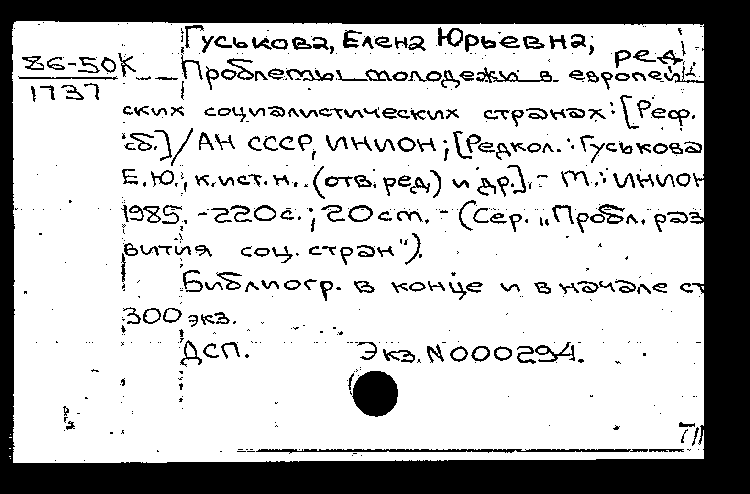 Гуськова, Елена Юрьевна,
ред
86-50К
1737
Проблемы молодежи в европей-
ских социалистических странах: [Реф.
сб.] / АН СССР, ИНИОН; [Редкол.: Гуськова
Е.Ю., к.ист.н. (отв. ред.) и др.]. - М.: ИНИОН
1985. - 220 с.; 20 см. - (Сер. „Пробл. раз
вития соц. стран").
Библиогр. в конце и в начале ст
300 экз.
ДСП. Экз. N 000294.